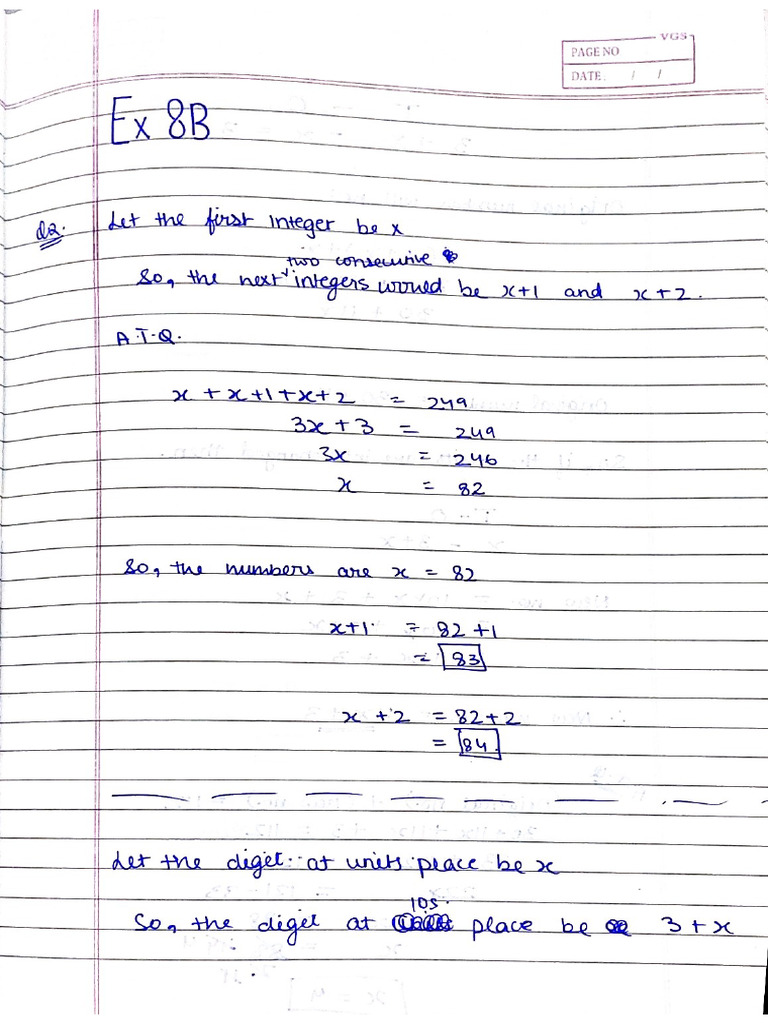 VGS
PAGE NO
DATE: / /
Ex 8B
Q2. Let the first integer be x
two consecutive
So, the next integers would be x+1 and x+2.
A.T.Q.
x + x+1+x+2 = 249
3x+3 = 249
3x = 246
x = 82
So, the numbers are x = 82
x+1 = 82+1
= 83
x+2 = 82+2
= 84
Let the diget at units place be x
10s
So, the diget at place be 3+x